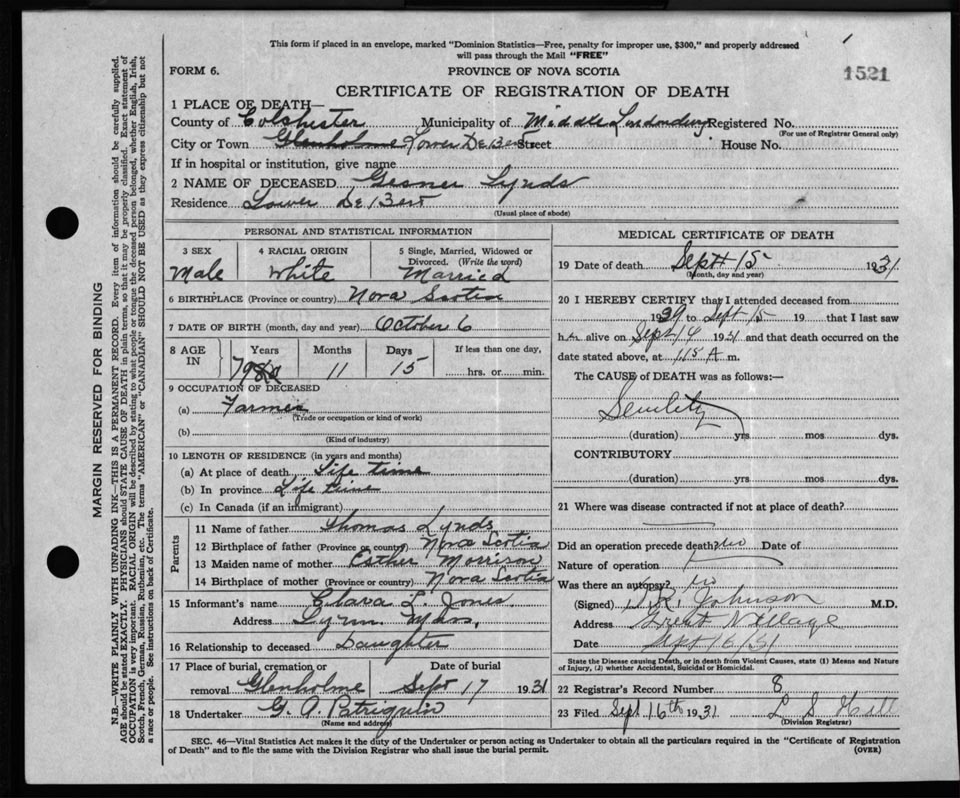 This form if placed in an envelope, marked "Dominion Statistics—Free, penalty for improper use, $300," and properly addressed
will pass through the Mail "FREE"
FORM 6.
PROVINCE OF NOVA SCOTIA
1521
CERTIFICATE OF REGISTRATION OF DEATH
1 PLACE OF DEATH—
County of Colchester Municipality of Middle Londonderry Registered No.
(For use of Registrar General only)
City or Town Glenholme Lower DeBert Street House No.
If in hospital or institution, give name
2 NAME OF DECEASED Gesner Lynds
Residence Lower DeBert
(Usual place of abode)
PERSONAL AND STATISTICAL INFORMATION
3 SEX 4 RACIAL ORIGIN 5 Single, Married, Widowed or
Divorced. (Write the word)
Male White Married
6 BIRTHPLACE (Province or country) Nova Scotia
7 DATE OF BIRTH (month, day and year) October 6
8 AGE IN Years Months Days If less than one day,
11 15 hrs. or min.
9 OCCUPATION OF DECEASED
(a) Farmer
(Trade or occupation or kind of work)
(b)
(Kind of industry)
10 LENGTH OF RESIDENCE (in years and months)
(a) At place of death Life time
(b) In province Life time
(c) In Canada (if an immigrant)
Parents
11 Name of father Thomas Lynds
12 Birthplace of father (Province or country) Nova Scotia
13 Maiden name of mother Esther Morrison
14 Birthplace of mother (Province or country) Nova Scotia
15 Informant's name Clara L. Jones
Address Lynn Mass,
16 Relationship to deceased Daughter
17 Place of burial, cremation or removal Date of burial
Glenholme Sept 17 1931
18 Undertaker G. A. Patriquin
(Name and address)
MEDICAL CERTIFICATE OF DEATH
19 Date of death Sept 15 1931
(Month, day and year)
20 I HEREBY CERTIFY that I attended deceased from
to Sept 15 19 that I last saw
alive on Sept 14 and that death occurred on the
date stated above, at 1.15 A m.
The CAUSE of DEATH was as follows:—
Senility
(duration) yrs mos dys.
CONTRIBUTORY
(duration) yrs mos dys.
21 Where was disease contracted if not at place of death?
Did an operation precede death? no Date of
Nature of operation
Was there an autopsy? no
(Signed) Johnson M.D.
Address Great Village
Date Sept 16/31
State the Disease causing Death, or in death from Violent Causes, state (1) Means and Nature
of Injury, (2) whether Accidental, Suicidal or Homicidal.
22 Registrar's Record Number 8
23 Filed Sept 16th 1931 L S Hill
(Division Registrar)
SEC. 46—Vital Statistics Act makes it the duty of the Undertaker or person acting as Undertaker to obtain all the particulars required in the "Certificate of Registration
of Death" and to file the same with the Division Registrar who shall issue the burial permit. (OVER)
MARGIN RESERVED FOR BINDING
N.B.—WRITE PLAINLY WITH UNFADING INK—THIS IS A PERMANENT RECORD. Every item of information should be carefully supplied.
AGE should be stated EXACTLY. PHYSICIANS should STATE CAUSE OF DEATH in plain terms, so that it may be properly classified. Exact statement of
OCCUPATION is very important. RACIAL ORIGIN will be described by stating to what people or tongue the deceased person belonged, whether English, Irish,
Scotch, French, German, Russian, Ruthenian, etc. The terms "AMERICAN" or "CANADIAN" SHOULD NOT BE USED as they express citizenship but not
a race or people. See instructions on back of Certificate.